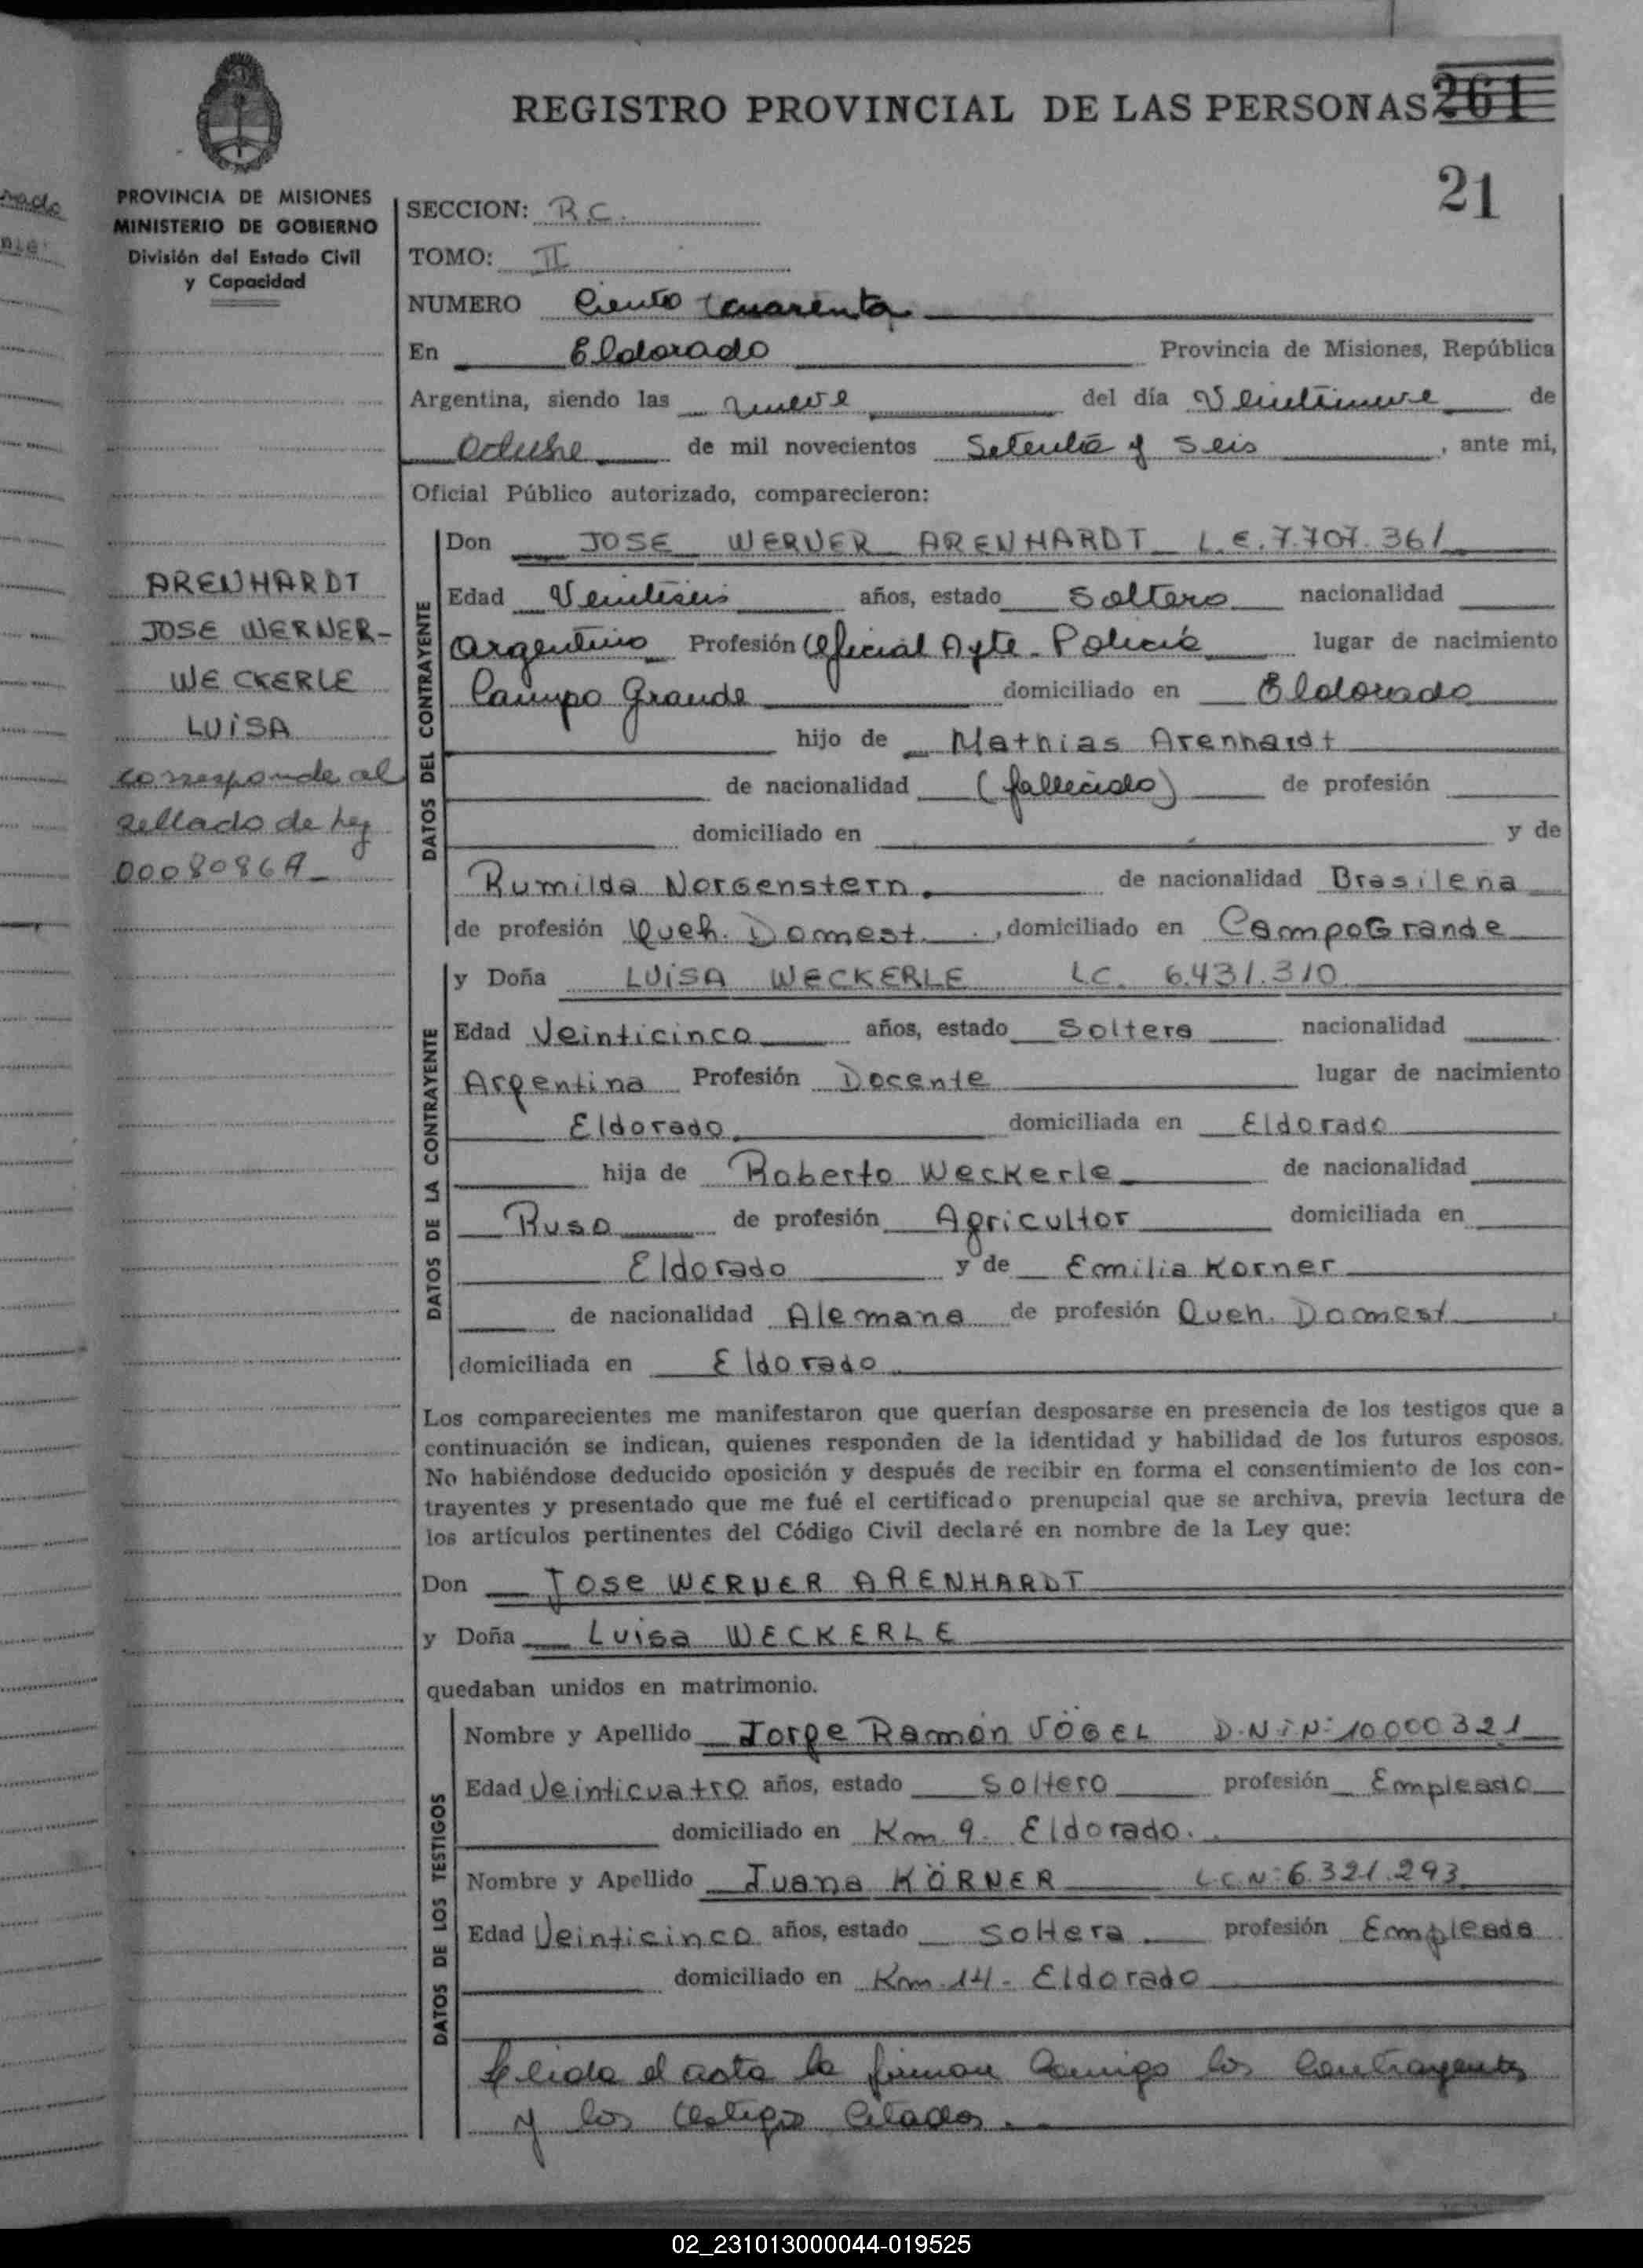 REGISTRO PROVINCIAL DE LAS PERSONAS 261
21
PROVINCIA DE MISIONES
MINISTERIO DE GOBIERNO
División del Estado Civil
y Capacidad
SECCION: R.C.
TOMO: II
NUMERO Ciento Cuarenta
En Eldorado Provincia de Misiones, República
Argentina, siendo las nueve del día Veintinueve de
Octubre de mil novecientos Setenta y Seis, ante mi,
Oficial Público autorizado, comparecieron:
ARENHARDT
JOSE WERNER-
WECKERLE
LUISA
corresponde al
sellado de ley
DATOS DEL CONTRAYENTE
Don JOSE WERNER ARENHARDT L.E. 7.707.361
Edad Veintiseis años, estado Soltero nacionalidad
Argentino Profesión Oficial Ayte. Policía lugar de nacimiento
Campo Grande domiciliado en Eldorado
hijo de Mathias Arenhardt
de nacionalidad (fallecido) de profesión
domiciliado en y de
Rumilda Norgenstern de nacionalidad Brasileña
de profesión Queh. Domest., domiciliado en Campo Grande
DATOS DE LA CONTRAYENTE
y Doña LUISA WECKERLE LC. 6.431.310
Edad Veinticinco años, estado Soltera nacionalidad
Argentina Profesión Docente lugar de nacimiento
Eldorado domiciliada en Eldorado
hija de Roberto Weckerle de nacionalidad
Ruso de profesión Agricultor domiciliada en
Eldorado y de Emilia Korner
de nacionalidad Alemana de profesión Queh. Domest
domiciliada en Eldorado
Los comparecientes me manifestaron que querían desposarse en presencia de los testigos que a
continuación se indican, quienes responden de la identidad y habilidad de los futuros esposos.
No habiéndose deducido oposición y después de recibir en forma el consentimiento de los con-
trayentes y presentado que me fué el certificado prenupcial que se archiva, previa lectura de
los artículos pertinentes del Código Civil declaré en nombre de la Ley que:
Don Jose WERNER ARENHARDT
y Doña Luisa WECKERLE
quedaban unidos en matrimonio.
DATOS DE LOS TESTIGOS
Nombre y Apellido Jorge Ramón VÖGEL D.N.I Nº 10.000321
Edad Veinticuatro años, estado Soltero profesión Empleado
domiciliado en Km 9. Eldorado.
Nombre y Apellido Juana KÖRNER L.C.Nº 6.321.293
Edad Veinticinco años, estado Soltera profesión Empleada
domiciliado en Km 14 - Eldorado
leida el acta la firman Conmigo los Contrayentes
y los testigos Citados.
02_231013000044-019525